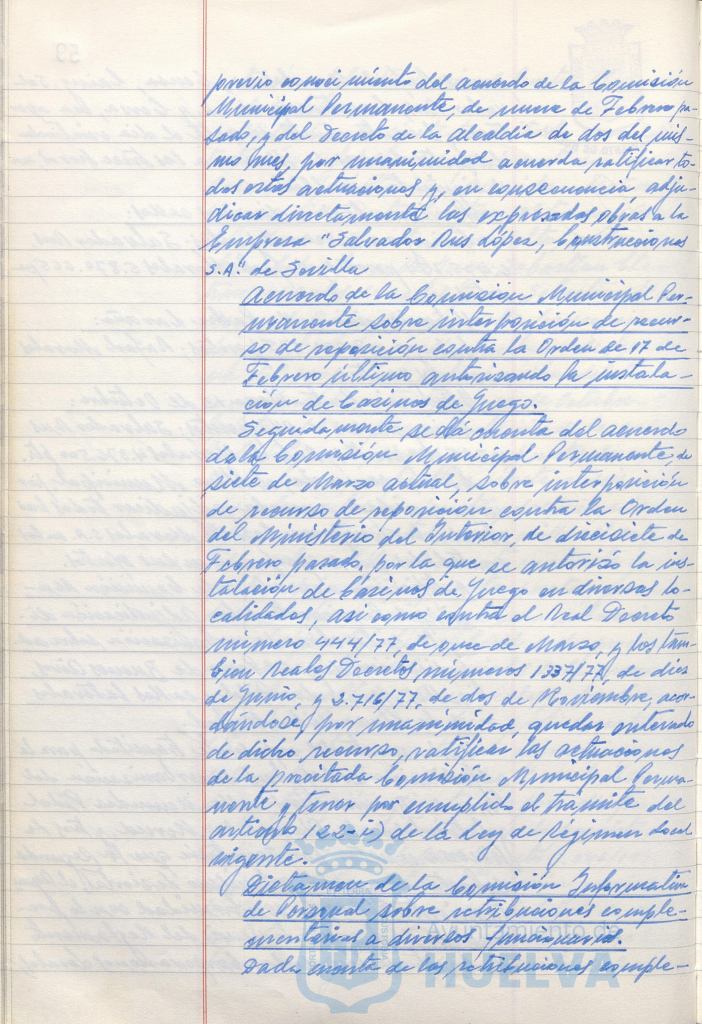 previo conocimiento del acuerdo de la Comisión
Municipal Permanente, de nueve de Febrero pa-
sado, y del Decreto de la Alcaldía de dos del mis-
mo mes, por unanimidad acuerda ratificar to-
das estas actuaciones y, en consecuencia, adju-
dicar directamente las expresadas obras a la
Empresa "Salvador Rus López, Construcciones
S.A." de Sevilla
Acuerdo de la Comisión Municipal Per-
manente sobre interposición de recur-
so de reposición contra la Orden de 17 de
Febrero último autorizando la instala-
ción de Casinos de Juego.
Seguidamente se dá cuenta del acuerdo
de la Comisión Municipal Permanente, de
siete de Marzo actual, sobre interposición
de recurso de reposición contra la Orden
del Ministerio del Interior, de diecisiete de
Febrero pasado, por la que se autorizó la ins-
talación de Casinos de Juego en diversas lo-
calidades, así como contra el Real Decreto
número 444/77, de once de Marzo, y los tam-
bién Reales Decretos, números 1337/77, de diez
de Junio, y 2.716/77, de dos de Noviembre, acor-
dándose, por unanimidad, quedar enterado
de dicho recurso, ratificar las actuaciones
de la precitada Comisión Municipal Perma-
nente y tener por cumplido el trámite del
artículo 122-i) de la Ley de Régimen Local
vigente.
Dictamen de la Comisión Informativa
de Personal sobre retribuciones comple-
mentarias a diversos funcionarios.
Dada cuenta de las retribuciones comple-
Ayuntamiento de
HUELVA